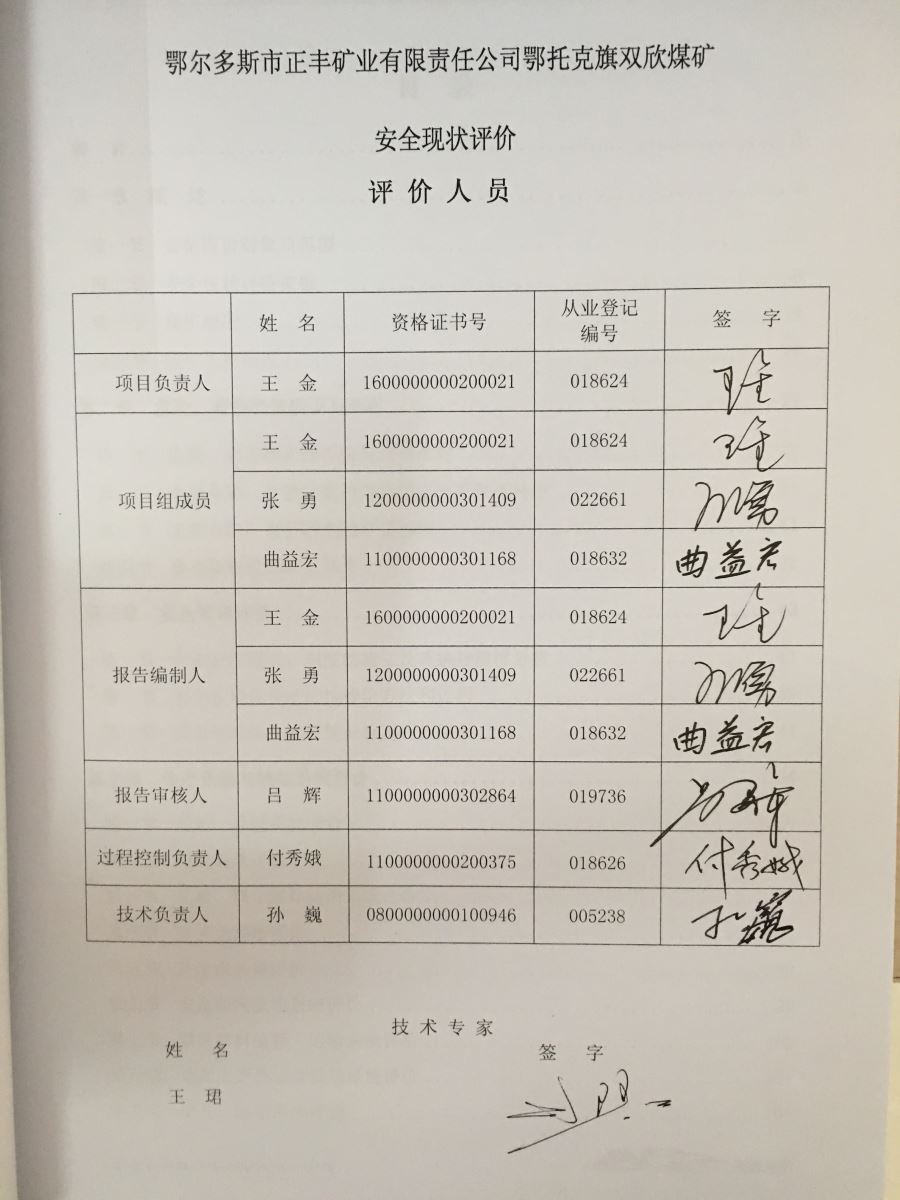 鄂尔多斯市正丰矿业有限责任公司鄂托克旗双欣煤矿
安全现状评价
评价人员
姓 名 资格证书号 从业登记编号 签 字
项目负责人 王 金 1600000000200021 018624 王金
项目组成员 王 金 1600000000200021 018624 王金
张 勇 1200000000301409 022661 张勇
曲益宏 1100000000301168 018632 曲益宏
报告编制人 王 金 1600000000200021 018624 王金
张 勇 1200000000301409 022661 张勇
曲益宏 1100000000301168 018632 曲益宏
报告审核人 吕 辉 1100000000302864 019736 吕辉
过程控制负责人 付秀娥 1100000000200375 018626 付秀娥
技术负责人 孙 巍 0800000000100946 005238 孙巍
技术专家
姓 名 签 字
王 珺